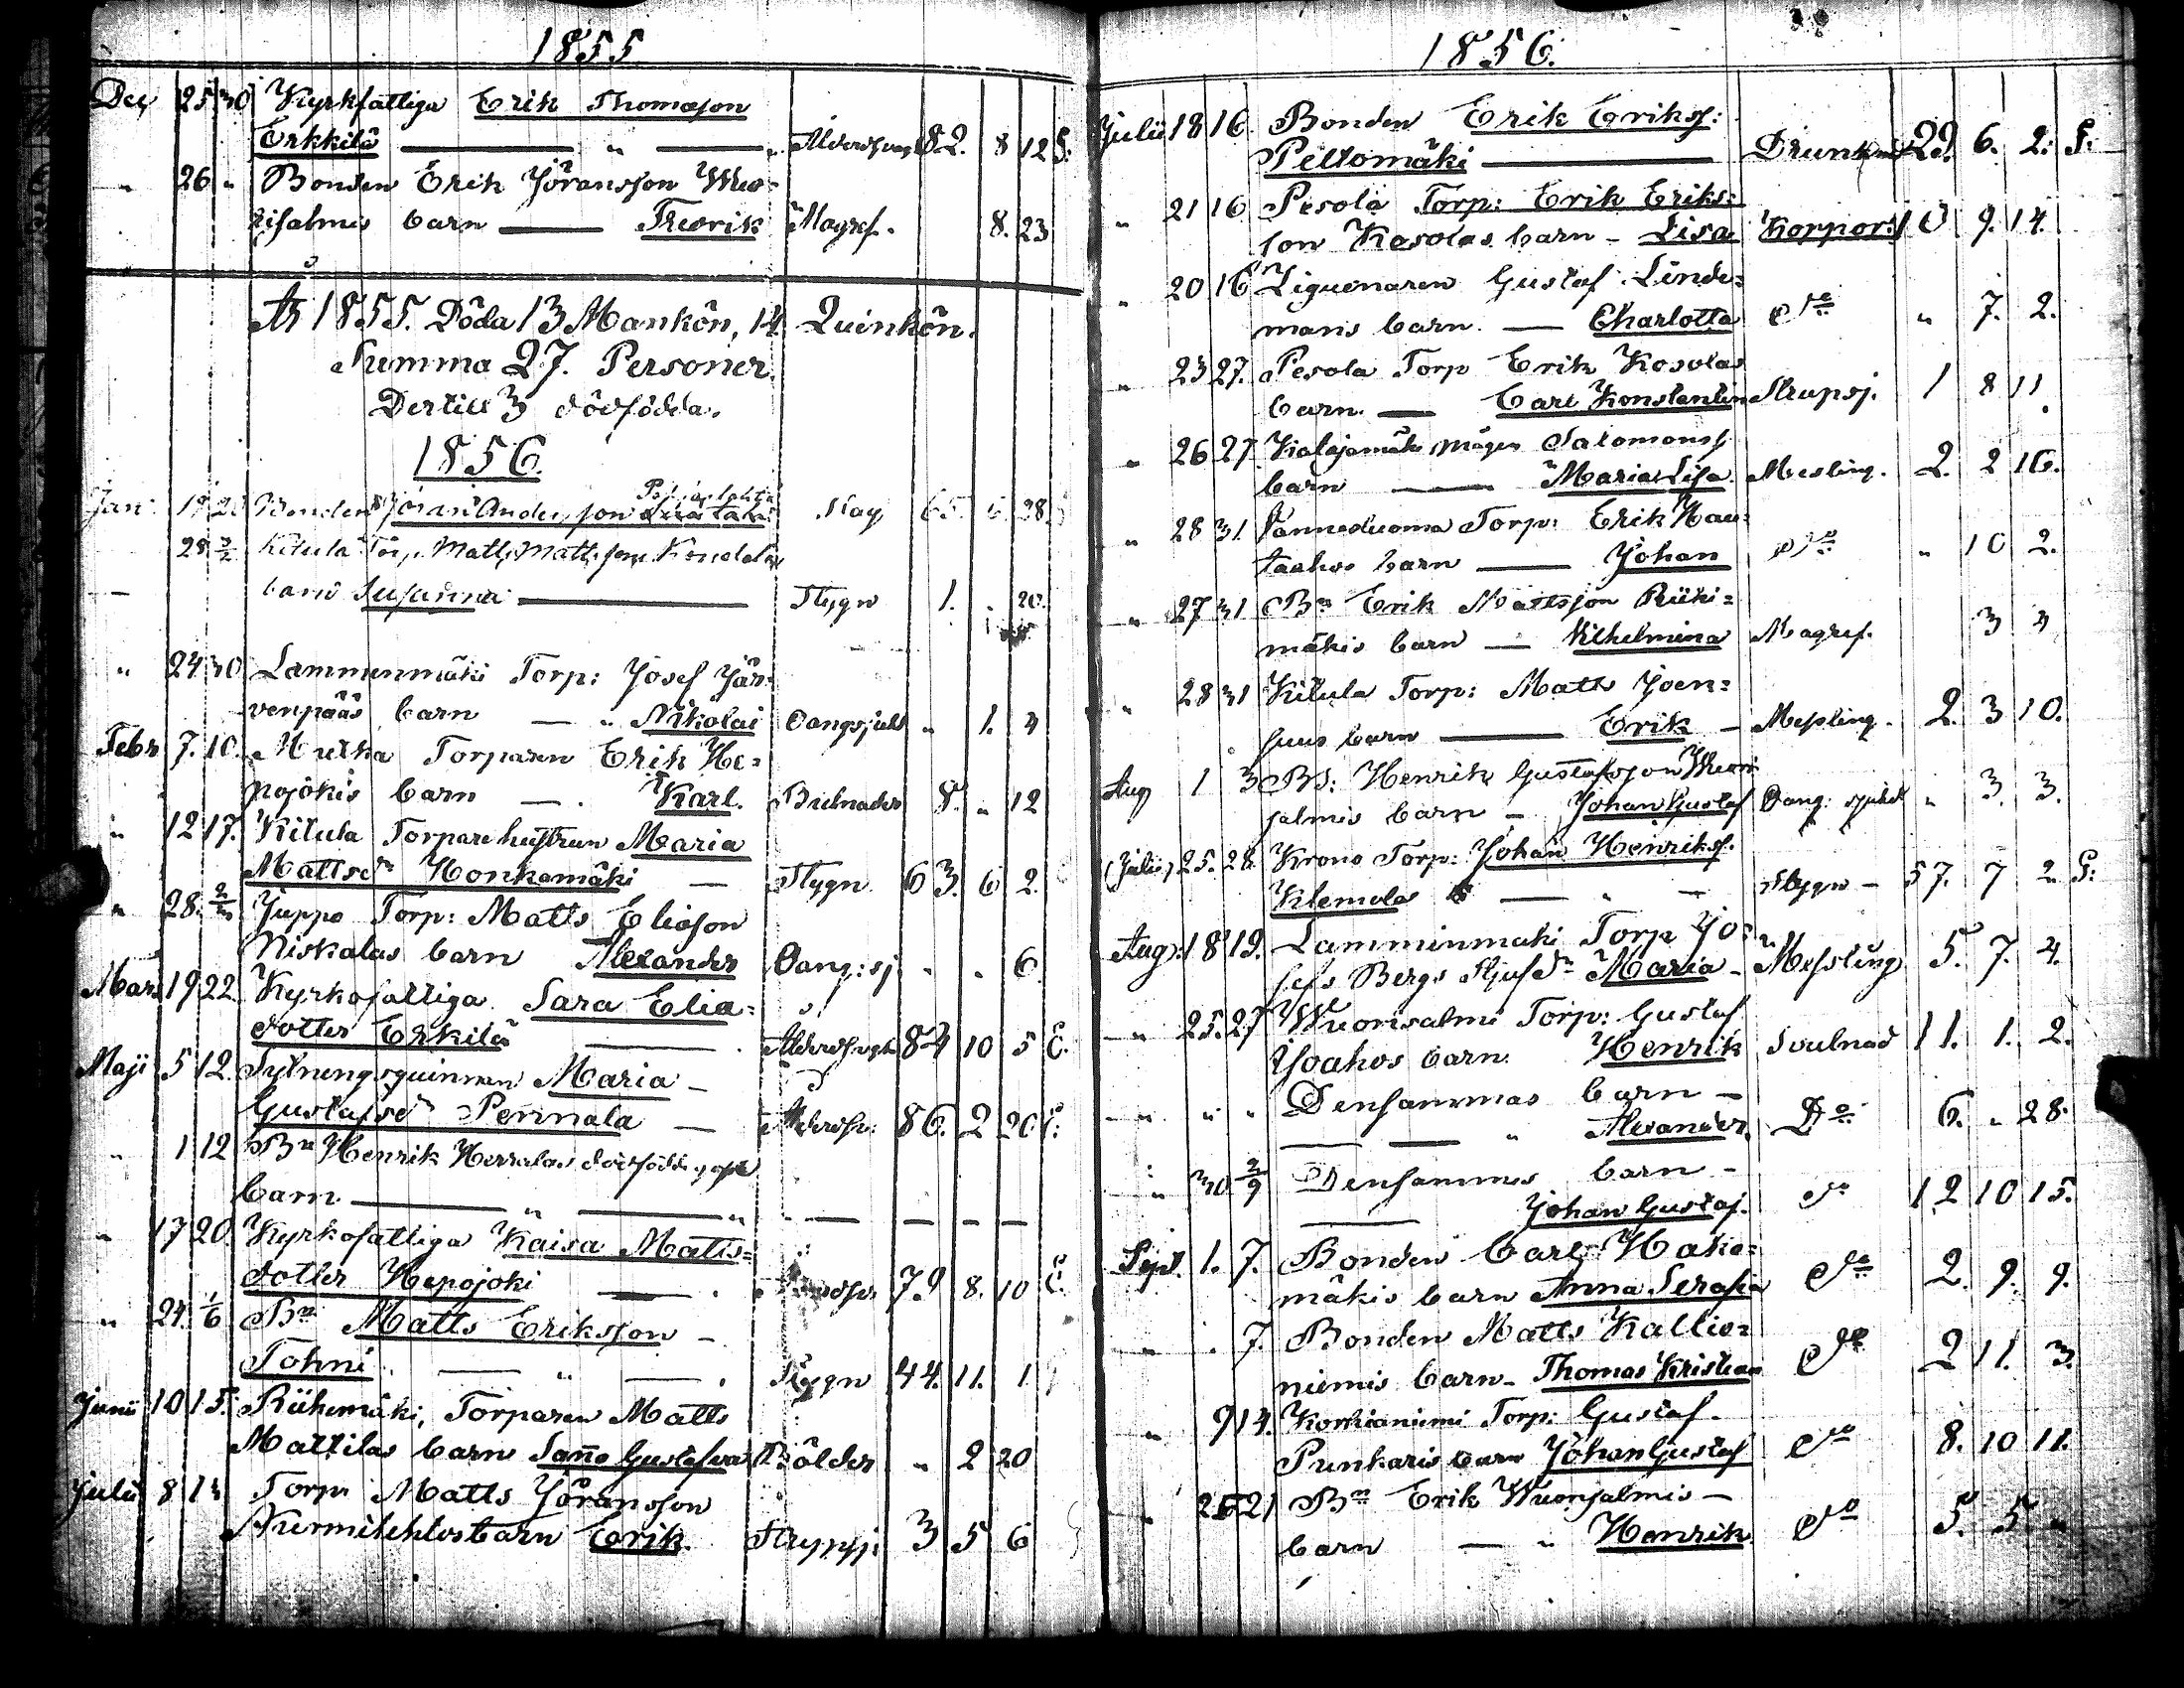 1855
Dec 25 30 Kyrkfattiga Erik Thomasson
Erkkilä — " — Ålderdomsv 82. 8 12 G.
" 26 " Bonden Erik Jöransson Wuo-
risalmis barn — Fredrik Magref. 8. 23
År 1855. Döda 13 Mankön, 14 Quinkön.
Summa 27. Personer.
Dertill 3 dödfödda.
1856.
Jan: 19 20 Bonden Jöran Andersson Slag 65. 28.
28 3/2 Kitula Torp. Matts Mattsson
barn Susanna — Stygn 1. " 20.
" 24 30 Lammenmäki Torp: Josef Jär-
venpääs barn — " Nikolai Oangsjukd " 1. 4
Febr 7. 10. Mutka Torparen Erik He=
pojokis barn — . Karl. Bulnader 8. " 12
" 12 17. Kitula Torpare hustrun Maria
Mattsdr Honkamäki — Stygn 63. 6 2.
" 28. 2/3 Juppo Torp: Matts Eliason
Niskalas barn Alexander Oang: sj " " 6
Mars 19 22. Kyrkofattiga Sara Elia=
dotter Erkilä — . 84 10 5
Maji 5 12. Sytningsquinnan Maria —
Gustafsdr Pennala — 86. 2 20
" 1 12 Bn Henrik Herralas dödfödde
barn. — " — " — — —
" 17 20. Kyrkofattiga Kaisa Matts=
dotter Hepojoki — . 79 8. 10
" 24. 1/6 Bn Matts Eriksson —
Tohni — " — . Stygn 44. 11. 1
Junii 10 15. Riihimäki, Torparen Matts
Mattilas barn Sanna Gustafva " 2 20
Julii 8 13 Torp. Matts Jöransson
Nurmilehtos barn Erik. Strypsj: 3 5 6
1856.
Julii 18 16 Bonden Erik Eriks:
Peltomäki — Drunknat 29. 6. 2. G.
" 21 16 Pesola Torp: Erik Eriks=
son Kosolas barn — Lisa Koppor 10 9. 14.
" 20 16 Ziguenaren Gustaf Linde=
mans barn. — Charlotta do " 7. 2.
" 23 27. Pesola Torp Erik Kosolas
barn. — Carl Konstantin Strupsj. 1 8 11
" 26 27. Kalajamäki mågen Salomons
barn — Maria Lisa Messling. 2. 2 16.
" 28 31. Torp: Erik Hau=
taahos barn — Johan do " 10 2.
" 27 31 Bn Erik Mattsson Riihi=
mäkis barn — Vilhelmina Magref. 3 4
" 28 31 Kitula Torp: Matts Joen=
suus barn — Erik — Messling. 2. 3 10.
Aug 1 3 Bs: Henrik Gustafsson Wuori
salmis barn — Johan Gustaf Oang: sjukd " 3. 3.
(Julii) 25. 28. Krono Torp: Johan Henriks.
Klemola — " — Stygn — 57. 7 2. G:
Aug: 18 19. Lamminmäki Torp Jo=
sefs Bergs Stjufdr Maria — Messling 5. 7. 4.
" 25. 27 Wuorisalmi Torp: Gustaf
Joahos barn. Henrik Svulnad 11. 1. 2.
" " " Densammas barn —
— " Alexander. Do 6. " 28.
" 30 2/9 Densammes barn —
— Johan Gustaf. do 12 10 15.
Sept. 1. 7. Bonden Carl Hake=
mäkis barn Anna Serafia do 2. 9. 9.
" . 7. Bonden Matts Kallio=
niemis barn — Thomas Kristian do 2 11. 3.
" 9 14. Korkianiemi Torp: Gustaf.
Punkaris barn Johan Gustaf do 8. 10 11.
" 21 Bn Erik Wuorisalmis —
barn — " Henrik do 5. 5. "